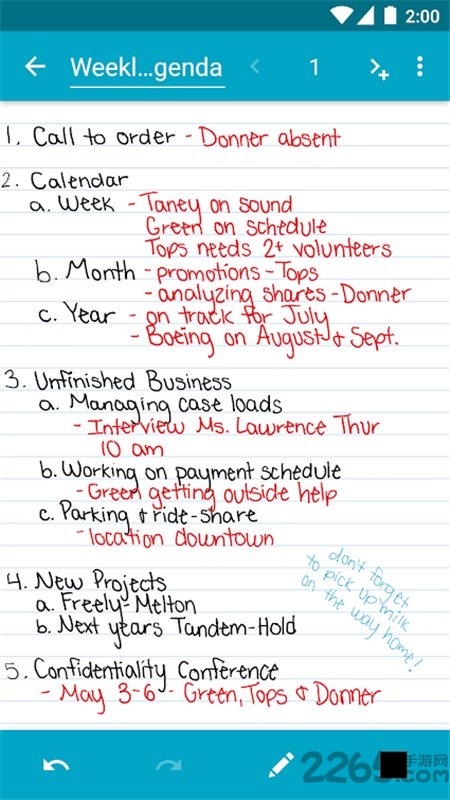 2:00
Weekl...genda
1
1. Call to order - Donner absent
2. Calendar
a. Week - Taney on sound
Green on schedule
Tops needs 2+ volunteers
b. Month - promotions - Tops
- analyzing shares - Donner
c. Year - on track for July
- Boeing on August & Sept.
3. Unfinished Business
a. Managing case loads
- Interview Ms. Lawrence Thur
10 am
b. Working on payment schedule
- Green getting outside help
c. Parking & ride-share
- location downtown
don't forget
to pick up milk
on the way home!
4. New Projects
a. Freely-Melton
b. Next years Tandem-Hold
5. Confidentiality Conference
- May 3-6 - Green, Tops & Donner
2265手游网
.com